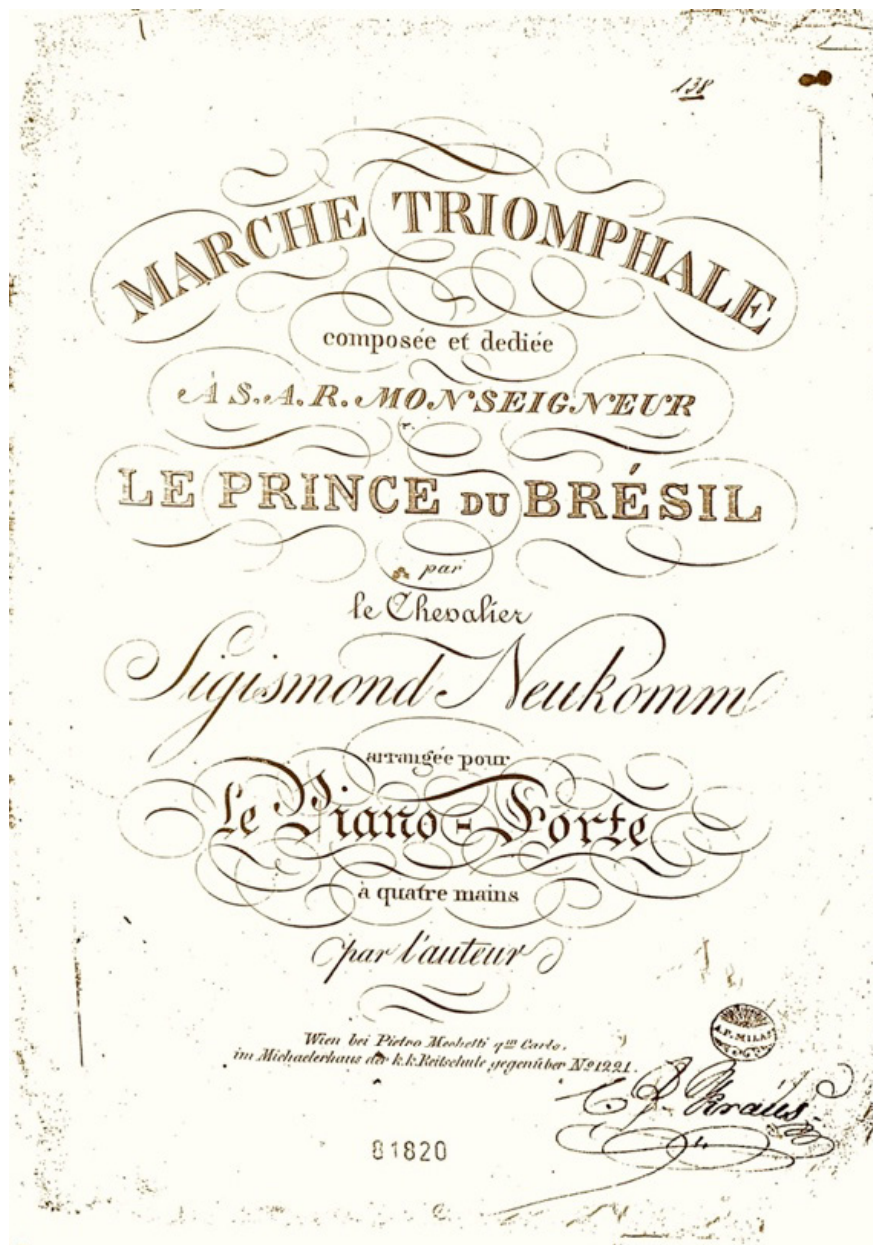 138
MARCHE TRIOMPHALE
composée et dediée
À S.A.R. MONSEIGNEUR
LE PRINCE DU BRÉSIL
par
le Chevalier
Sigismond Neukomm
arrangée pour
Le Piano-Forte
à quatre mains
par l'auteur
Wien bei Pietro Mechetti qm Carlo.
im Michaelerhaus der k.k. Reitschule gegenüber No 1221.
Kraus
81820